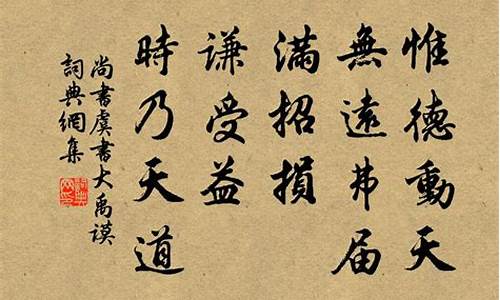 惟德動天
無遠弗届
滿招損
謙受益
時乃天道
尚書虞書大禹謨
詞典網集